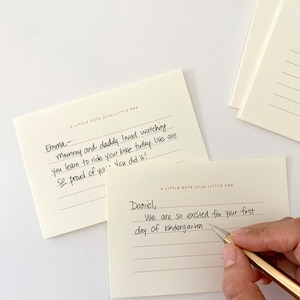 A LITTLE NOTE for my LITTLE ONE
Emma-
mommy and daddy loved watching
you learn to ride your bike today. We are
so proud of you! You did it!
A LITTLE NOTE for my LITTLE ONE
Daniel,
We are so excited for your first
day of kindergarten